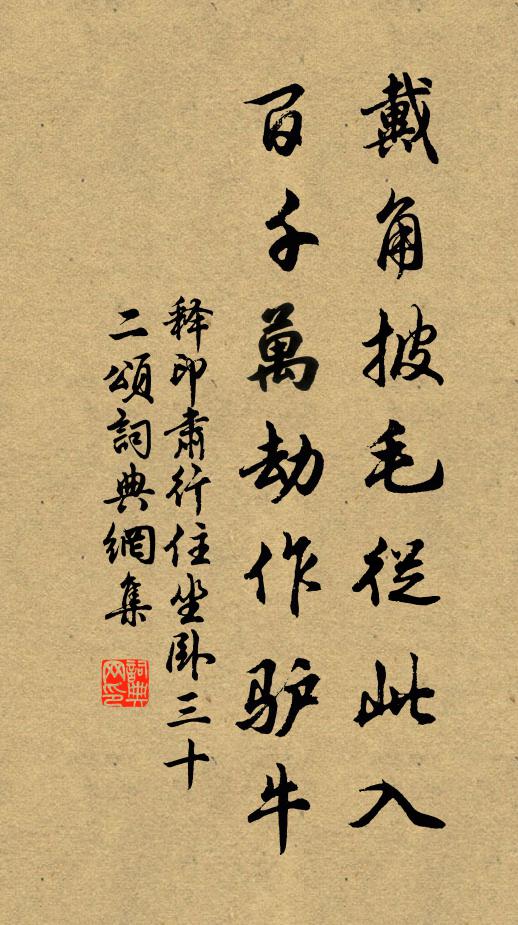 戴角披毛從此入
百千萬劫作驴牛
释印肅行住坐卧三十
二頌詞典網集
詞典网印